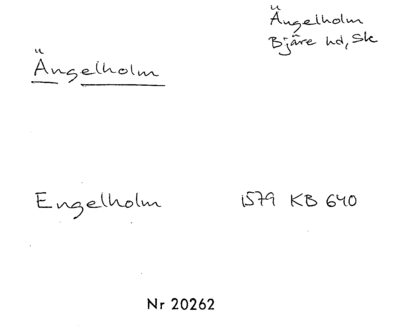 Ängelholm
Bjäre hd, Sk
Ängelholm
Engelholm 1579 KB 640
Nr 20262